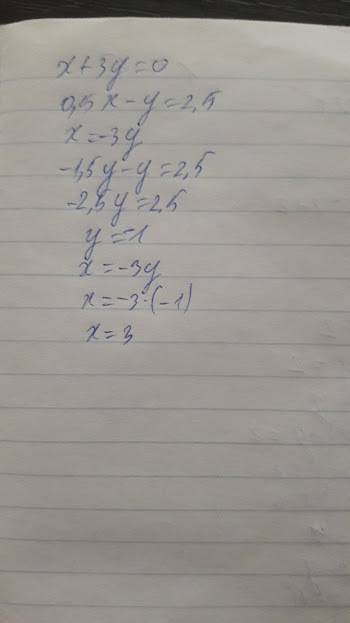 x+3y=0
0,5x-y=2,5
x=-3y
-1,5y-y=2,5
-2,5y=2,5
y=-1
x=-3y
x=-3·(-1)
x=3